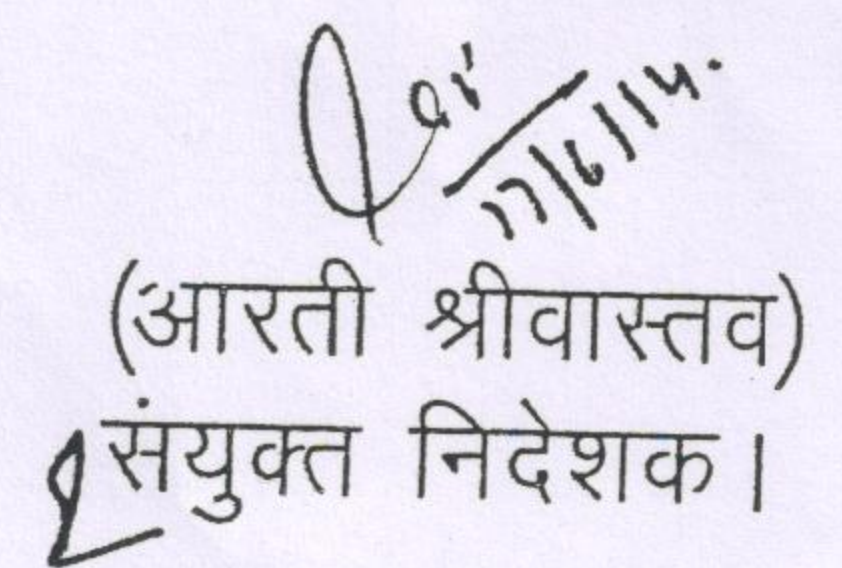 17/6/14.
(आरती श्रीवास्तव)
संयुक्त निदेशक।